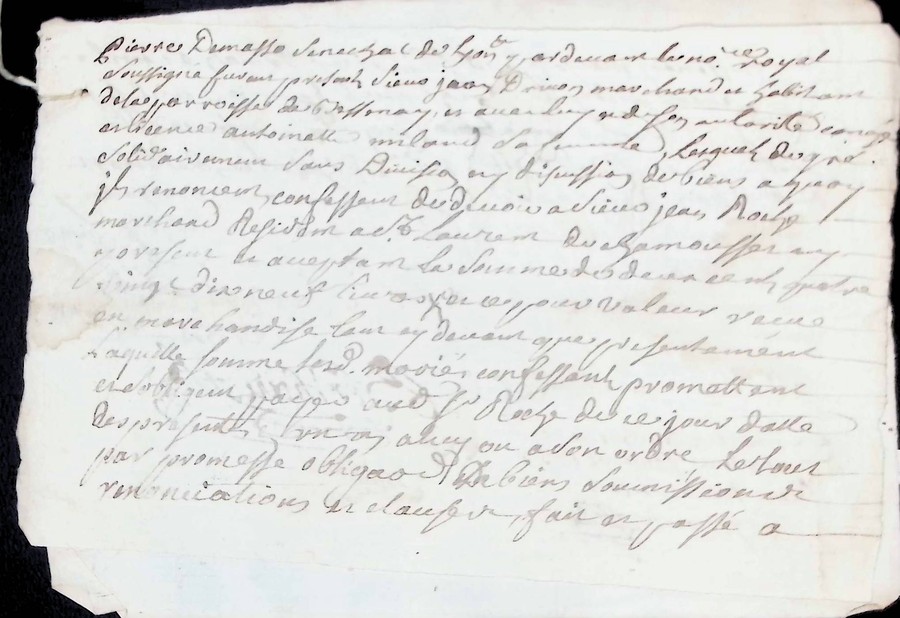 Pierre Demasso Senechal de Lyon pardevant le no.re royal
soussigné furent presents Sieur jean marchand et habitant
de la parroisse de Bessenay, et avec luy et de son authorité
et licence anthomette miland sa femme, lesquels de gré
solidairement sans Division ny discussion de biens a quoy
ils renoncent, confessent devoir a Sieur jean Roche
marchand Resident a St Laurent de chamousset cy
present et acceptant la somme de deux cent quatre
vingt dix neuf livres et ce pour valeur receue
en marchandise tant cy devant que presentement
Laquelle somme lesd. mariés confessent promettent
et obligent payer aud Sr Roche de ce jour datte
des presentes en un an ou a son ordre Le tout
par promesse obligaon De biens soumissions
renonciations et clauses, fait et passé a